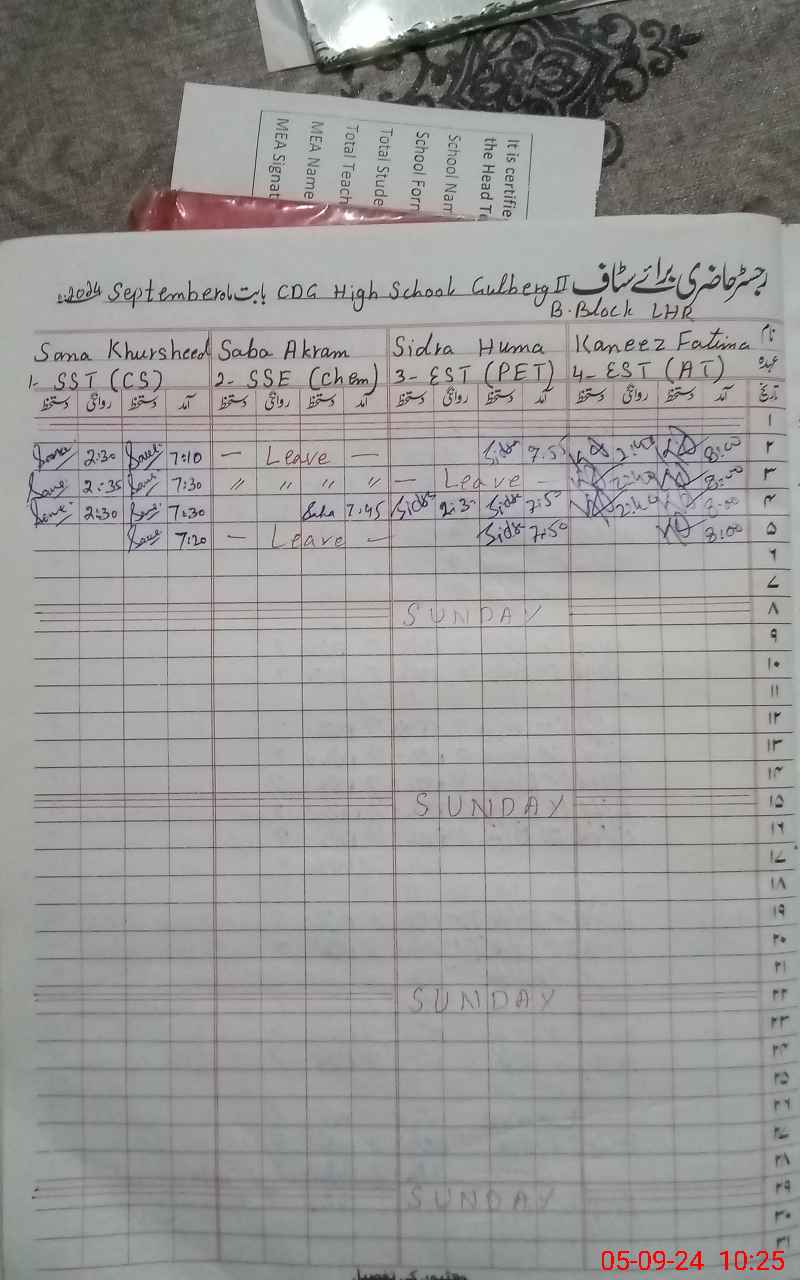 It is certifie
the Head Te
School Nam
School Form
Total Stude
Total Teach
MEA Name
MEA Signat
رجسٹر حاضری برائے سٹاف CDG High School Gulberg II بابت ماہ September 2024
B-Block LHR
نام Sana Khursheed Saba Akram Sidra Huma Kaneez Fatima
عہدہ 1- SST (CS) 2- SSE (Chem) 3- EST (PET) 4- EST (AT)
تاریخ آمد دستخط روانگی دستخط آمد دستخط روانگی دستخط آمد دستخط روانگی دستخط آمد دستخط روانگی دستخط
۱
2:30 7:10 — Leave — Sidra 7:55 2:40 8:00 ۲
2:35 7:30 " " " " — Leave — 2:40 8:00 ۳
2:30 7:30 Saba 7:45 Sidra 2:30 Sidra 7:50 2:40 8:00 ۴
7:20 — Leave — Sidra 7:50 8:00 ۵
۶
۷
SUNDAY ۸
۹
۱۰
۱۱
۱۲
۱۳
۱۴
SUNDAY ۱۵
۱۶
۱۷
۱۸
۱۹
۲۰
۲۱
SUNDAY ۲۲
۲۳
۲۴
۲۵
۲۶
۲۷
۲۸
SUNDAY ۲۹
۳۰
۳۱
05-09-24 10:25